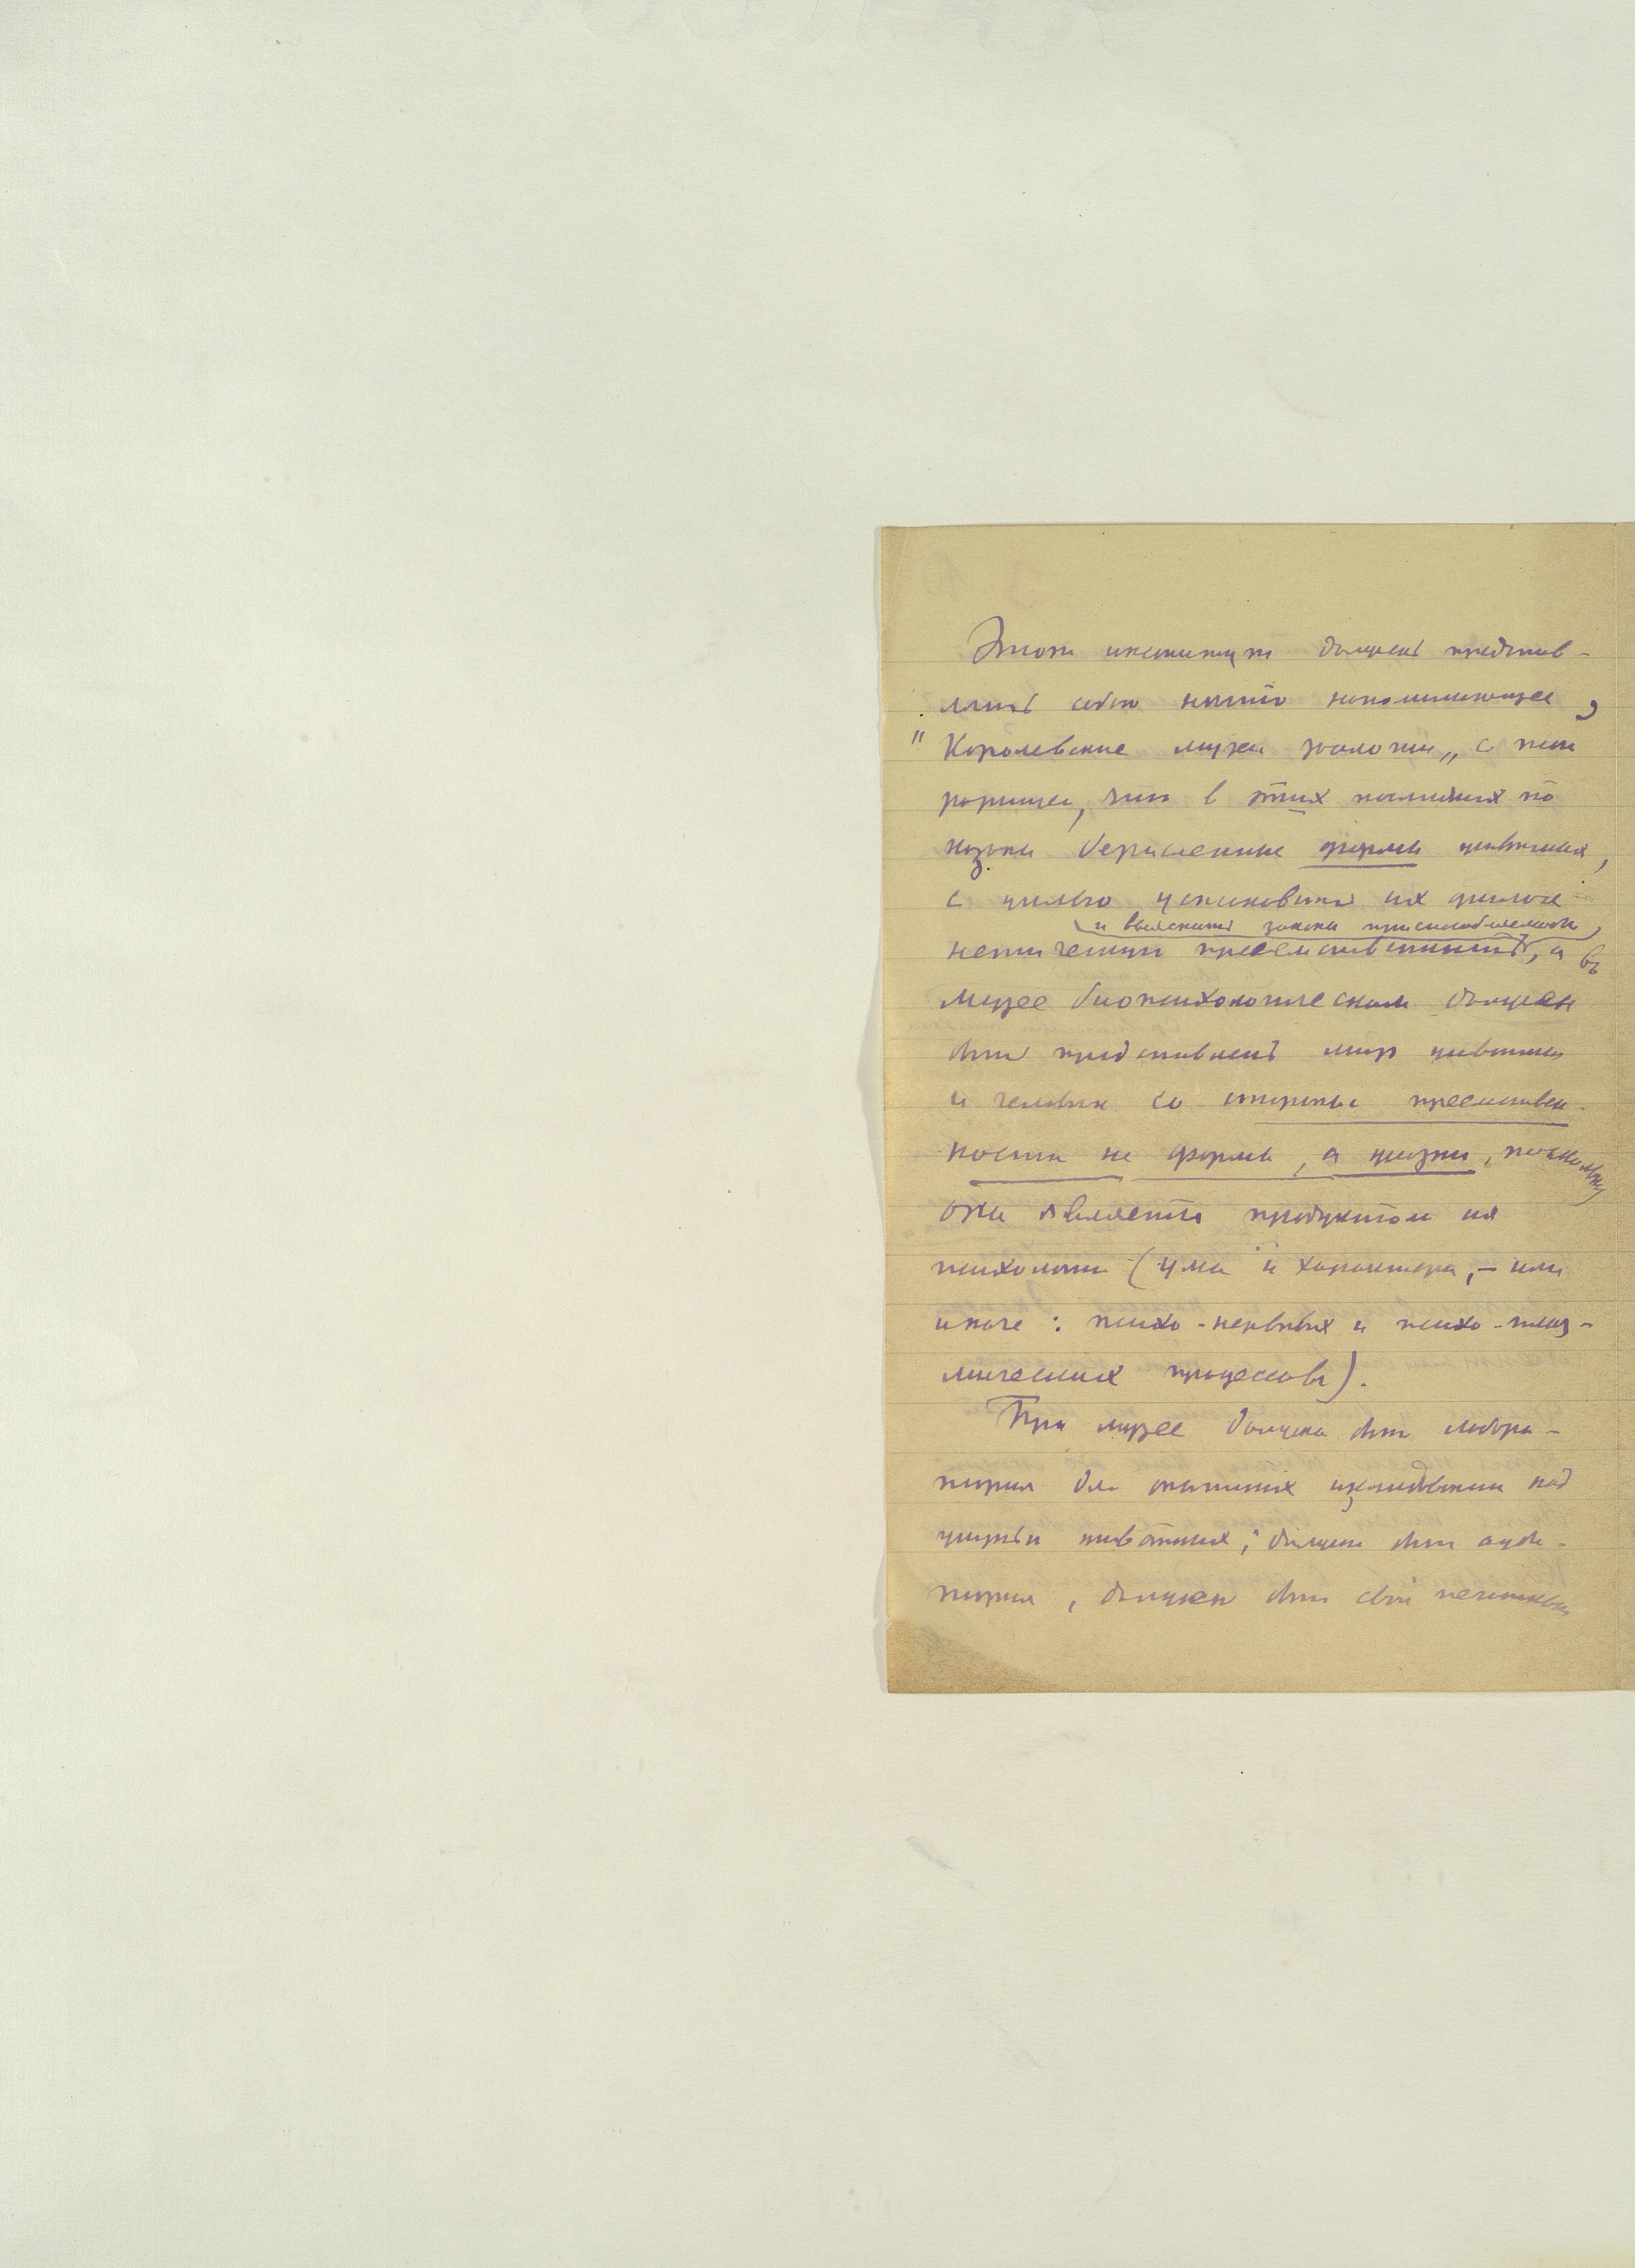 Этот институт должен представ-
лять собою нечто напоминающее,
"Королевские музеи зоологии„ с той
разницей, что в этих последних по
казаны бесчисленные формы животных,
с целью установить их филоге
и выяснить законы приспособляемости,
нетическую преемственность, а въ
Музее биопсихологическом должен
быть представлен мир животных
и человек со стороны преемствен-
ности не формы, а жизни, поскольку
она является продуктом их
психологии (ума и характера, - или
иначе: психо-нервных и психо-плаз-
мических процессовъ).
При музее должна быть лабора-
тория для опытных изследований над
жизнью животных; должна быть ауди-
тория, должен быть свой печатный